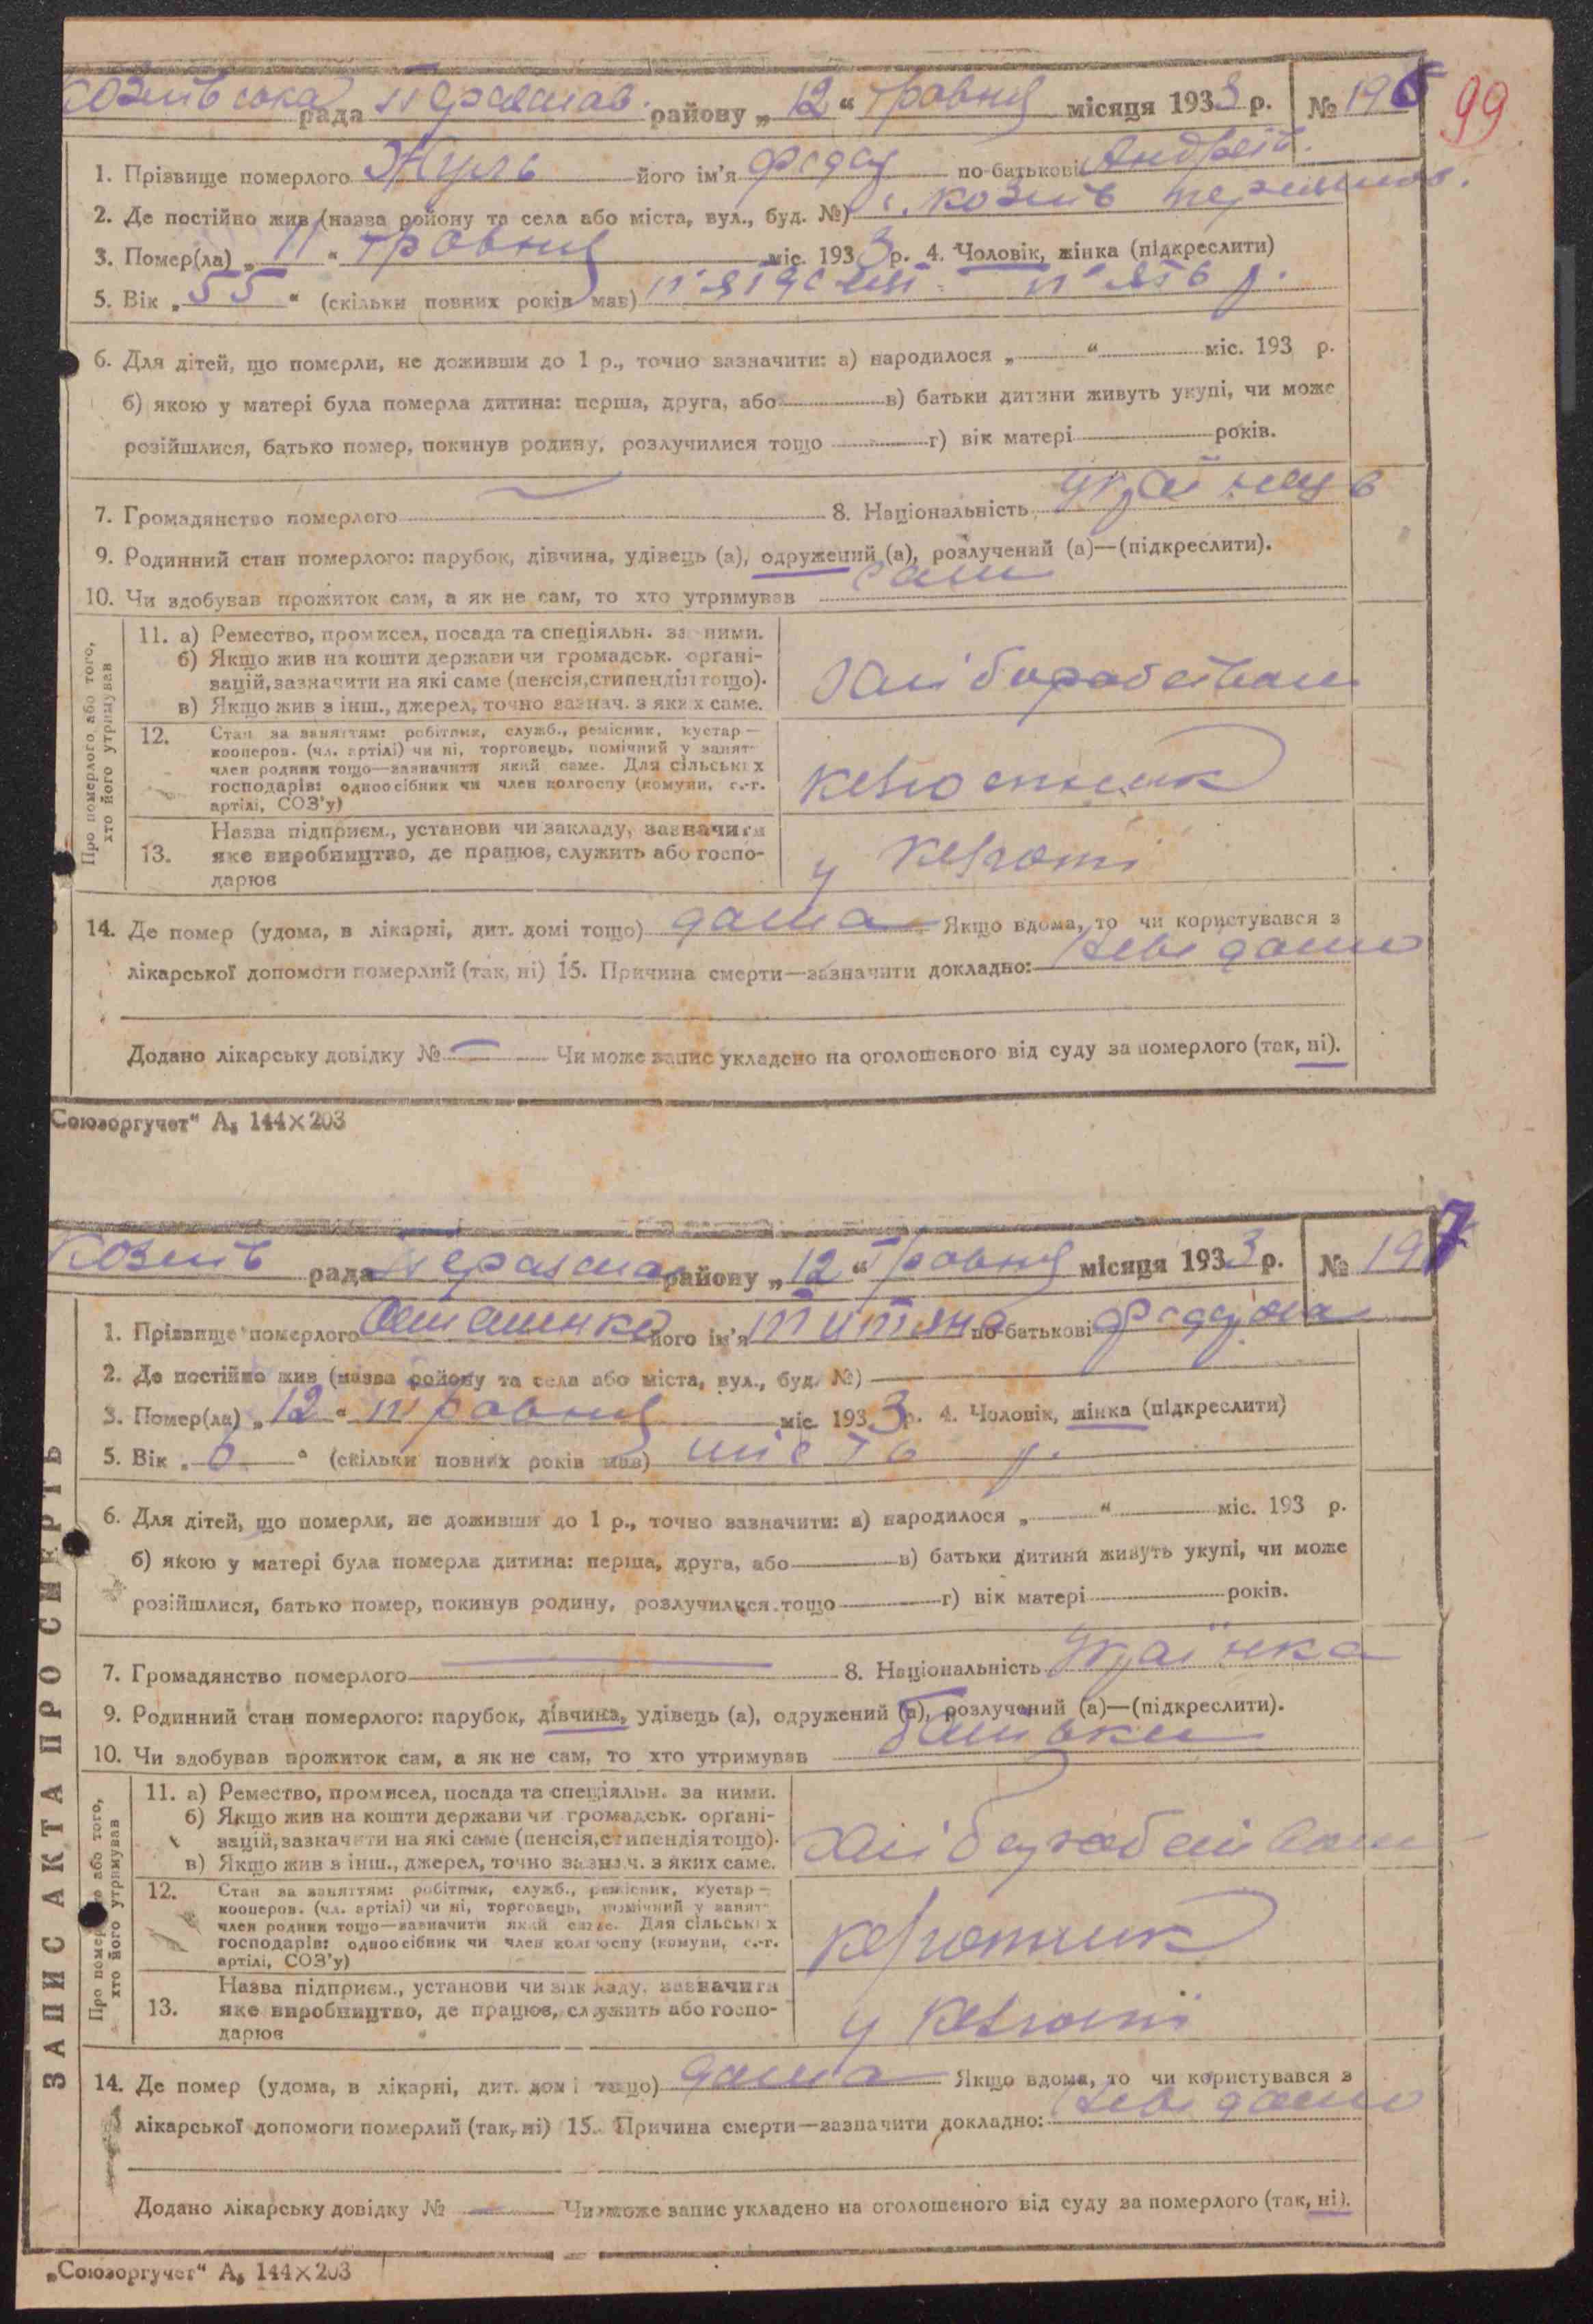 рада Переяслав. району „12“ травня місяця 1933 р. № 196
99
1. Прізвище померлого Жуль його ім'я Федір по-батькові Андрєєв.
2. Де постійно жив (назва району та села або міста, вул., буд. №) с. Козлів
3. Помер(ла) „11“ травня міс. 1933 р. 4. Чоловік, жінка (підкреслити)
5. Вік „55“ (скільки повних років мав) п'ятдесят п'ять р.
6. Для дітей, що померли, не доживши до 1 р., точно зазначити: а) народилося „ “ міс. 193 р.
б) якою у матері була померла дитина: перша, друга, або в) батьки дитини живуть укупі, чи може
розійшлися, батько помер, покинув родину, розлучилися тощо г) вік матері років.
7. Громадянство померлого 8. Національність українець
9. Родинний стан померлого: парубок, дівчина, удівець (а), одружений (а), розлучений (а)—(підкреслити).
10. Чи здобував прожиток сам, а як не сам, то хто утримував сам
Про померлого або того, хто його утримував
11. а) Ремество, промисел, посада та спеціяльн. за ними.
б) Якщо жив на кошти держави чи громадськ. органі-
зацій, зазначити на які саме (пенсія, стипендія тощо).
в) Якщо жив з інш., джерел, точно зазнач. з яких саме.
12. Стан за заняттям: робітник, служб., ремісник, кустар—
кооперов. (чл. артілі) чи ні, торговець, помічний у занят-
член родини тощо—зазначити який саме. Для сільських
господарів: одноосібник чи член колгоспу (комуни, с.-г.
артілі, СОЗ'у)
13. Назва підприєм., установи чи закладу, зазначити
яке виробництво, де працює, служить або госпо-
дарює
14. Де помер (удома, в лікарні, дит. домі тощо) дома Якщо вдома, то чи користувався з
лікарської допомоги померлий (так, ні) 15. Причина смерти—зазначити докладно: невідомо
Додано лікарську довідку № Чи може запис укладено на оголошеного від суду за померлого (так, ні).
Союзоргучет“ А₅ 144×203
Козлів рада Переяслав району „12“ травня місяця 1933 р. № 197
1. Прізвище померлого його ім'я Титяна по-батькові
2. Де постійно жив (назва району та села або міста, вул., буд. №)
3. Помер(ла) „12“ травня міс. 1933 р. 4. Чоловік, жінка (підкреслити)
5. Вік „6“ (скільки повних років мав) шість р.
6. Для дітей, що померли, не доживши до 1 р., точно зазначити: а) народилося „ “ міс. 193 р.
б) якою у матері була померла дитина: перша, друга, або в) батьки дитини живуть укупі, чи може
розійшлися, батько помер, покинув родину, розлучилися тощо г) вік матері років.
7. Громадянство померлого 8. Національність українка
9. Родинний стан померлого: парубок, дівчина, удівець (а), одружений (а), розлучений (а)—(підкреслити).
10. Чи здобував прожиток сам, а як не сам, то хто утримував батьки
ЗАПИС АКТА ПРО СМЕРТЬ
Про померлого або того, хто його утримував
11. а) Ремество, промисел, посада та спеціяльн. за ними.
б) Якщо жив на кошти держави чи громадськ. органі-
зацій, зазначити на які саме (пенсія, стипендія тощо).
в) Якщо жив з інш., джерел, точно зазнач. з яких саме.
12. Стан за заняттям: робітник, служб., ремісник, кустар—
кооперов. (чл. артілі) чи ні, торговець, помічний у занят-
член родини тощо—зазначити який саме. Для сільських
господарів: одноосібник чи член колгоспу (комуни, с.-г.
артілі, СОЗ'у)
13. Назва підприєм., установи чи закладу, зазначити
яке виробництво, де працює, служить або госпо-
дарює
14. Де помер (удома, в лікарні, дит. домі тощо) дома Якщо вдома, то чи користувався з
лікарської допомоги померлий (так, ні) 15. Причина смерти—зазначити докладно: невідомо
Додано лікарську довідку № Чи може запис укладено на оголошеного від суду за померлого (так, ні).
„Союзоргучет“ А₅ 144×203